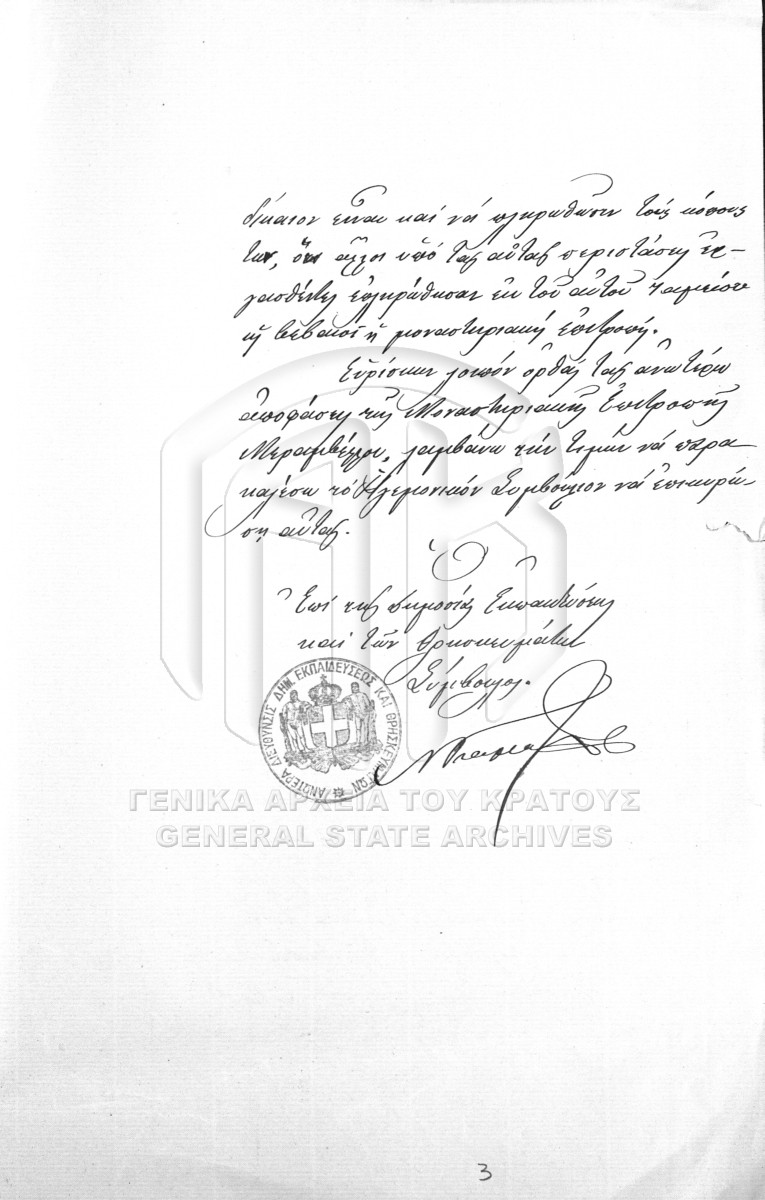 δίκαιον είναι καί νά πληρωθῶσιν τούς κόπους
των, ὅτι ἄλλοι ὑπό τάς αὐτάς περιστάσεις ἐρ-
γασθέντες ἐπληρώθησαν ἐκ τοῦ αὐτοῦ ταμείου
ὡς βεβαιοῖ ἡ μοναστηριακή ἐπιτροπή.
Εὑρίσκων λοιπόν ὀρθάς τάς ἀνωτέρω
ἀποφάσεις τῆς Μοναστηριακῆς Ἐπιτροπῆς
Μεραμβέλλου, λαμβάνω τήν τιμήν νά παρα
καλέσω τό Ἡγεμονικόν Συμβούλιον νά ἐπικυρώ-
σῃ αὐτάς.
Ὁ
Ἐπί τῆς Δημοσίας Ἐκπαιδεύσεως
καί τῶν Θρησκευμάτων
Σύμβουλος.
ΑΝΩΤΕΡΑ ΔΙΕΥΘΥΝΣΙΣ ΔΗΜ. ΕΚΠΑΙΔΕΥΣΕΩΣ ΚΑΙ ΘΡΗΣΚΕΥΜΑΤΩΝ
ΓΕΝΙΚΑ ΑΡΧΕΙΑ ΤΟΥ ΚΡΑΤΟΥΣ
GENERAL STATE ARCHIVES
3